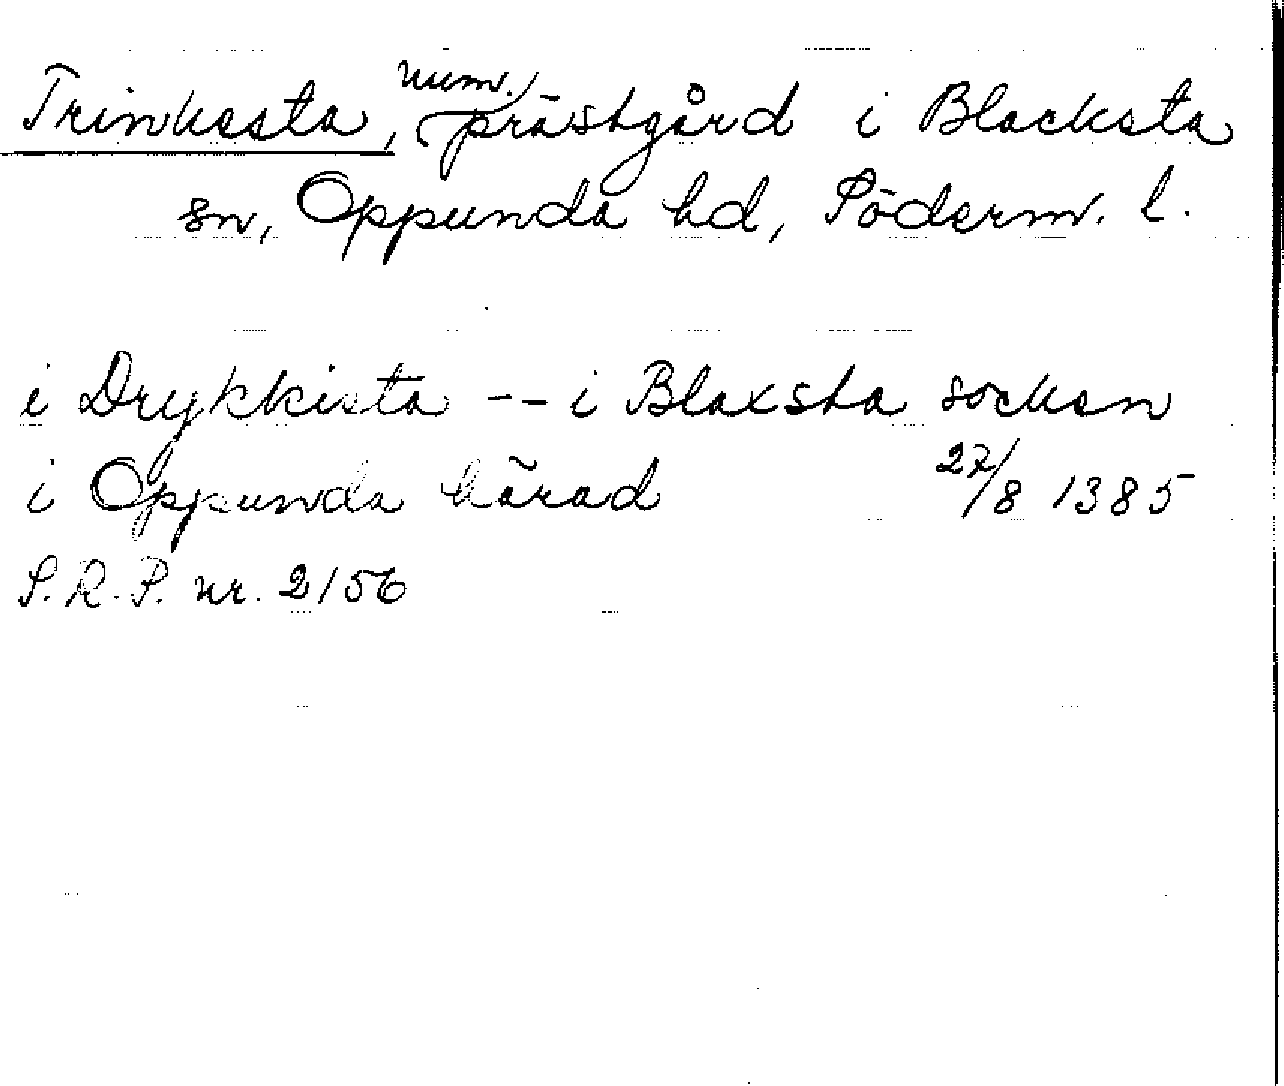 Trinkesta, num. prästgård i Blacksta
sn, Oppunda hd, Söderm. l.
i Drykkista -- i Blaxsta socken
i Oppunda härad 27/8 1385
S.R.P. nr. 2156